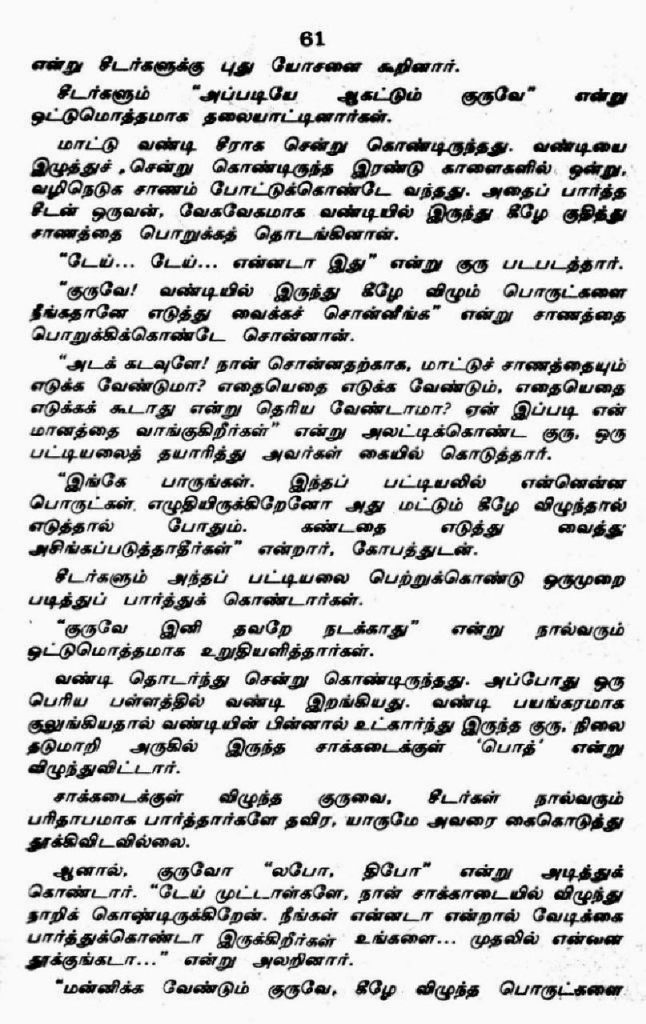 61
என்று சீடர்களுக்கு புது யோசனை கூறினார்.
சீடர்களும் “அப்படியே ஆகட்டும் குருவே” என்று
ஒட்டுமொத்தமாக தலையாட்டினார்கள்.
மாட்டு வண்டி சீராக சென்று கொண்டிருந்தது. வண்டியை
இழுத்துச் சென்று கொண்டிருந்த இரண்டு காளைகளில் ஒன்று,
வழிநெடுக சாணம் போட்டுக்கொண்டே வந்தது. அதைப் பார்த்த
சீடன் ஒருவன், வேகவேகமாக வண்டியில் இருந்து கீழே குதித்து
சாணத்தை பொறுக்கத் தொடங்கினான்.
“டேய்... டேய்... என்னடா இது” என்று குரு படபடத்தார்.
“குருவே! வண்டியில் இருந்து கீழே விழும் பொருட்களை
நீங்கதானே எடுத்து வைக்கச் சொன்னீங்க” என்று சாணத்தை
பொறுக்கிக்கொண்டே சொன்னான்.
“அடக் கடவுளே! நான் சொன்னதற்காக, மாட்டுச் சாணத்தையும்
எடுக்க வேண்டுமா? எதையெதை எடுக்க வேண்டும், எதையெதை
எடுக்கக் கூடாது என்று தெரிய வேண்டாமா? ஏன் இப்படி என்
மானத்தை வாங்குகிறீர்கள்” என்று அலட்டிக்கொண்ட குரு, ஒரு
பட்டியலைத் தயாரித்து அவர்கள் கையில் கொடுத்தார்.
“இங்கே பாருங்கள். இந்தப் பட்டியலில் என்னென்ன
பொருட்கள் எழுதியிருக்கிறேனோ அது மட்டும் கீழே விழுந்தால்
எடுத்தால் போதும். கண்டதை எடுத்து வைத்து
அசிங்கப்படுத்தாதீர்கள்” என்றார், கோபத்துடன்.
சீடர்களும் அந்தப் பட்டியலை பெற்றுக்கொண்டு ஒருமுறை
படித்துப் பார்த்துக் கொண்டார்கள்.
“குருவே இனி தவறே நடக்காது” என்று நால்வரும்
ஒட்டுமொத்தமாக உறுதியளித்தார்கள்.
வண்டி தொடர்ந்து சென்று கொண்டிருந்தது. அப்போது ஒரு
பெரிய பள்ளத்தில் வண்டி இறங்கியது. வண்டி பயங்கரமாக
குலுங்கியதால் வண்டியின் பின்னால் உட்கார்ந்து இருந்த குரு, நிலை
தடுமாறி அருகில் இருந்த சாக்கடைக்குள் ‘பொத்’ என்று
விழுந்துவிட்டார்.
சாக்கடைக்குள் விழுந்த குருவை, சீடர்கள் நால்வரும்
பரிதாபமாக பார்த்தார்களே தவிர, யாருமே அவரை கைகொடுத்து
தூக்கிவிடவில்லை.
ஆனால், குருவோ “லபோ, திபோ” என்று அடித்துக்
கொண்டார். “டேய் முட்டாள்களே, நான் சாக்காடையில் விழுந்து
நாறிக் கொண்டிருக்கிறேன். நீங்கள் என்னடா என்றால் வேடிக்கை
பார்த்துக்கொண்டா இருக்கிறீர்கள் உங்களை... முதலில் என்னை
தூக்குங்கடா...” என்று அலறினார்.
“மன்னிக்க வேண்டும் குருவே, கீழே விழுந்த பொருட்களை